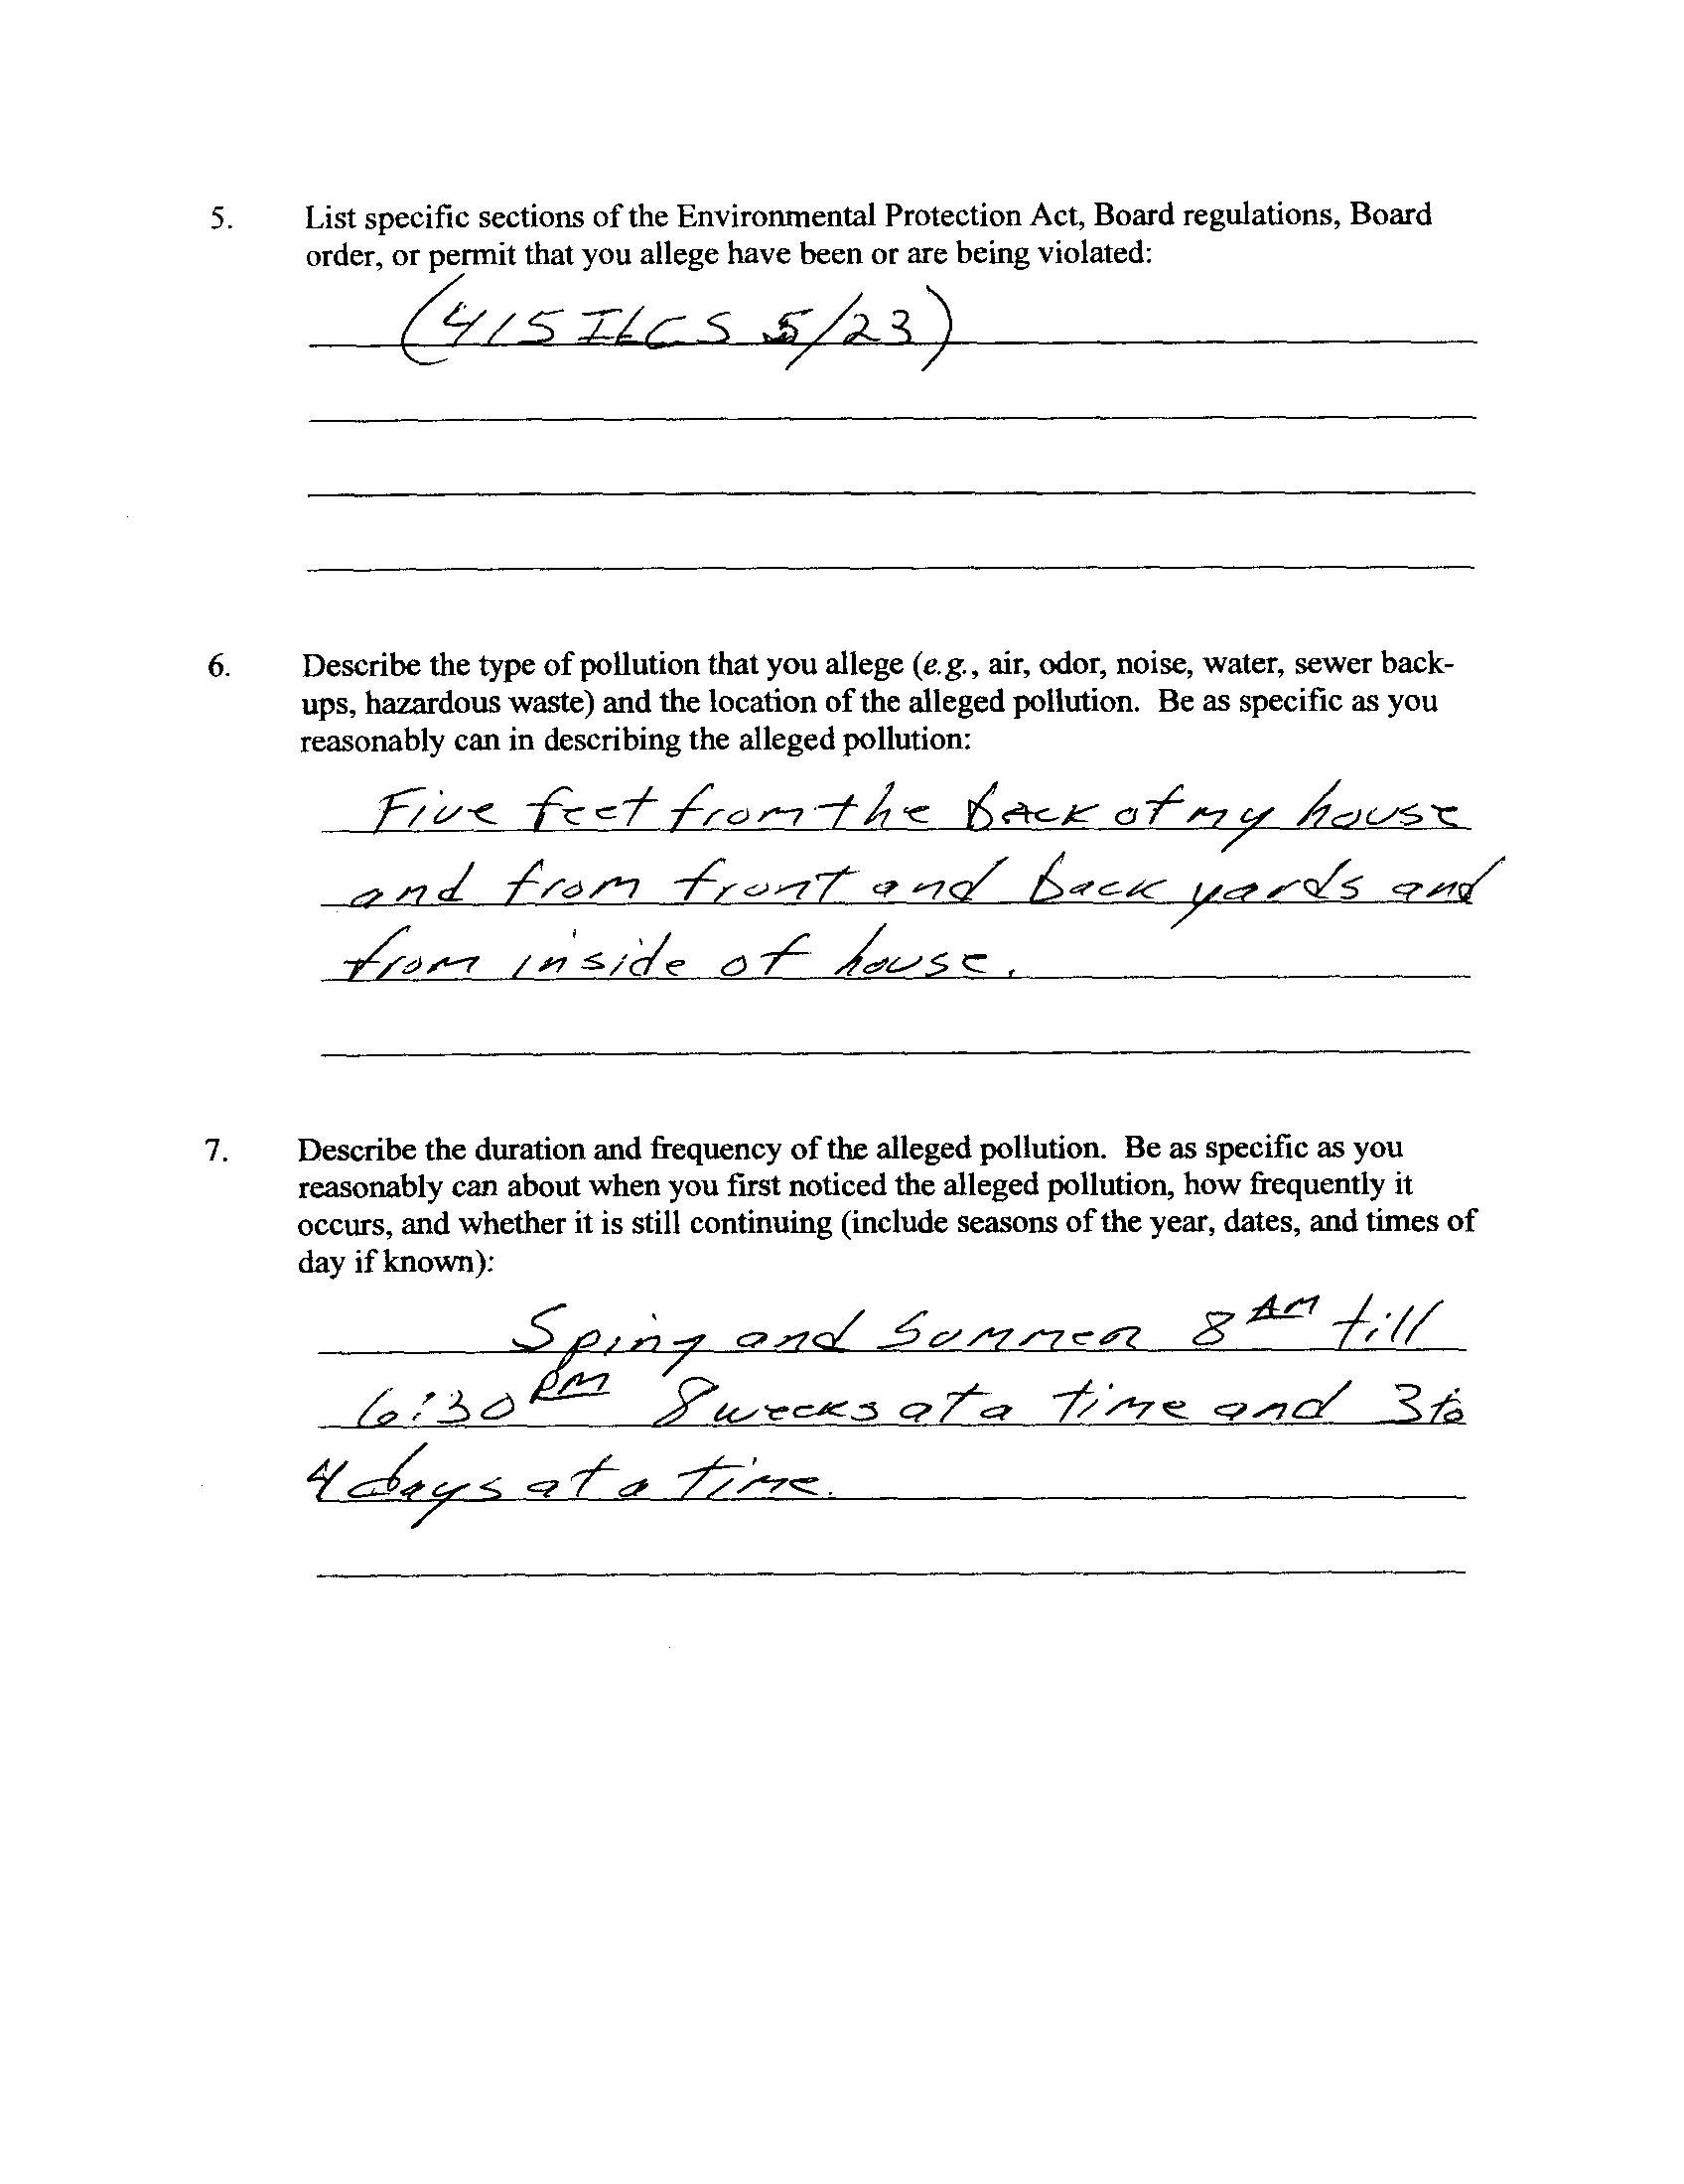 5. List specific sections of the Environmental Protection Act, Board regulations, Board
order, or permit that you allege have been or are being violated:
(415 ILCS 5/23)
6. Describe the type of pollution that you allege (e.g., air, odor, noise, water, sewer back-
ups, hazardous waste) and the location of the alleged pollution. Be as specific as you
reasonably can in describing the alleged pollution:
Five feet from the back of my house
and from front and back yards and
from inside of house.
7. Describe the duration and frequency of the alleged pollution. Be as specific as you
reasonably can about when you first noticed the alleged pollution, how frequently it
occurs, and whether it is still continuing (include seasons of the year, dates, and times of
day if known):
Sping and Summer 8 AM till
6:30 PM 8 weeks at a time and 3 to
4 days at a time.